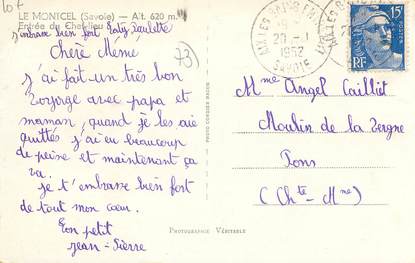 107
LE MONTCEL (Savoie) — Alt. 620 m.
Entrée du Chef-lieu
j'embrasse bien fort Paulette
73)
Chère Mémé
j'ai fait un très bon
voyage avec papa et
maman, quand je les aie
quittés j'ai eu beaucoup
de peine et maintenant ça
va.
je t'embrasse bien fort
de tout mon cœur.
Ton petit
Jean-Pierre
PHOTOGRAPHIE VÉRITABLE
AIX LES BAINS
20 -1
1952
SAVOIE
15F
RF
Mme Angel Cailliet
Moulin de la Vergne
Pons
(Chte-Mme)